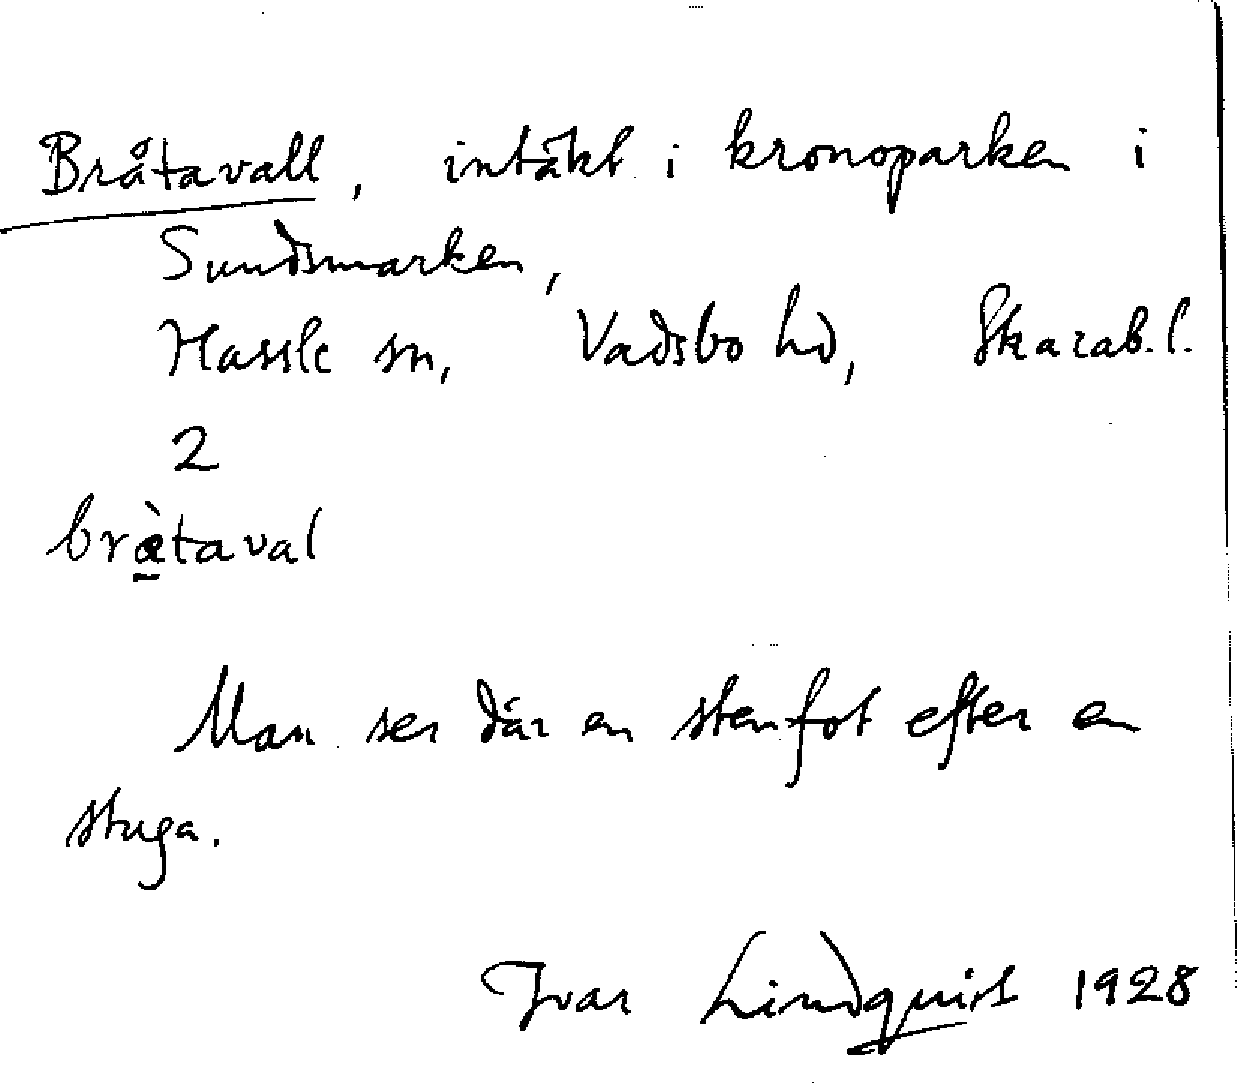 Bråtavall, intäkt i kronoparken i
Sundsmarken,
Hassle sn, Vadsbo hd, Skarab.l.
2
bræ̀taval
Man ser där en stenfot efter en
stuga.
Ivar Lindquist 1928